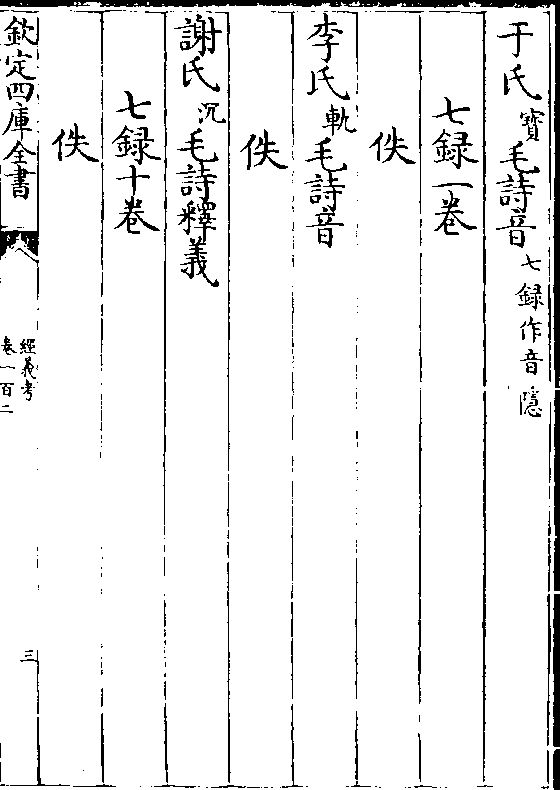 于氏寳毛詩音七録作音隱
七録一卷
佚
李氏軌毛詩音
佚
謝氏沉毛詩釋義
七録十卷
佚
欽定四庫全書
經義考
卷一百二
三